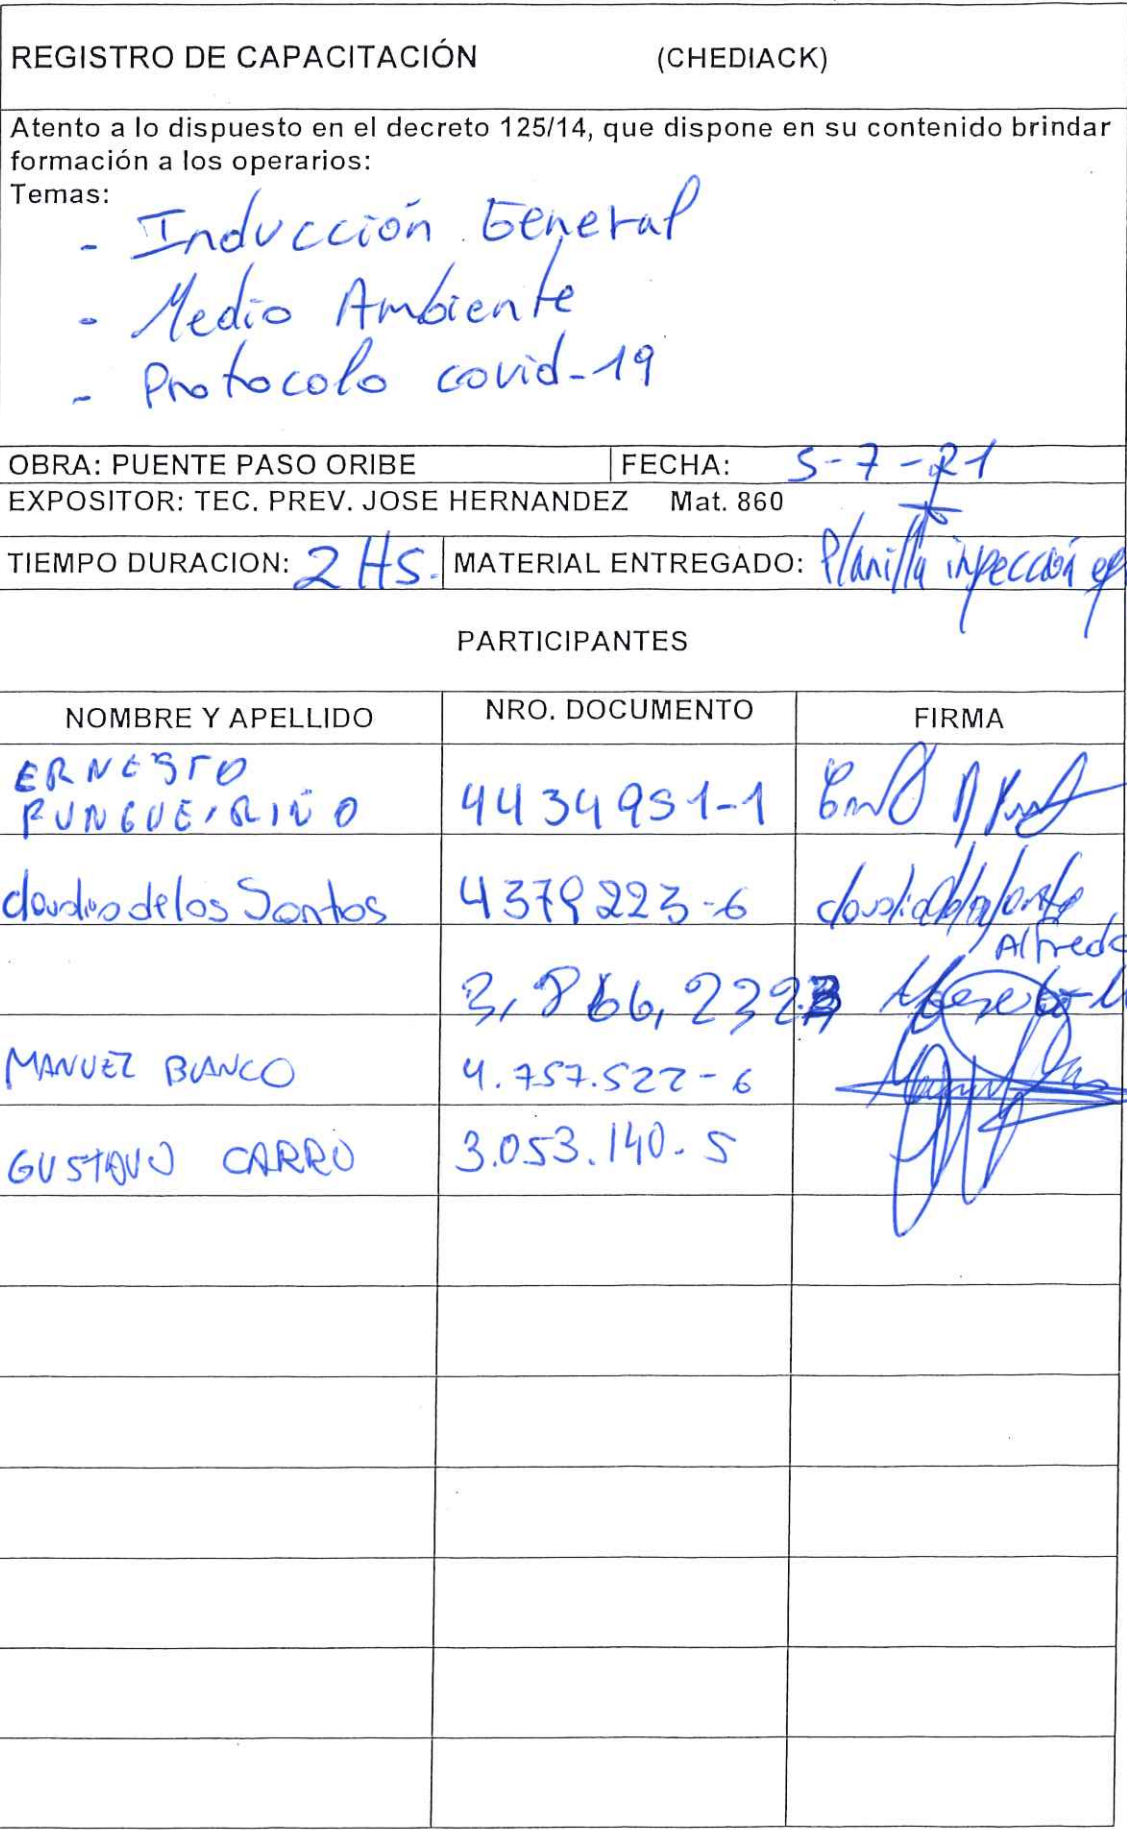 REGISTRO DE CAPACITACIÓN (CHEDIACK)
Atento a lo dispuesto en el decreto 125/14, que dispone en su contenido brindar
formación a los operarios:
Temas:
- Inducción General
- Medio Ambiente
- Protocolo covid-19
OBRA: PUENTE PASO ORIBE FECHA: 5-7-21
EXPOSITOR: TEC. PREV. JOSE HERNANDEZ Mat. 860
TIEMPO DURACION: 2 HS. MATERIAL ENTREGADO: Planilla
PARTICIPANTES
NOMBRE Y APELLIDO NRO. DOCUMENTO FIRMA
ERNESTO
4434951-1
claudio de los Santos 4379223-6
Alfredo
3,866,232
MANUEL BLANCO 4.757.522-6
GUSTAVO CARRO 3.053.140-5